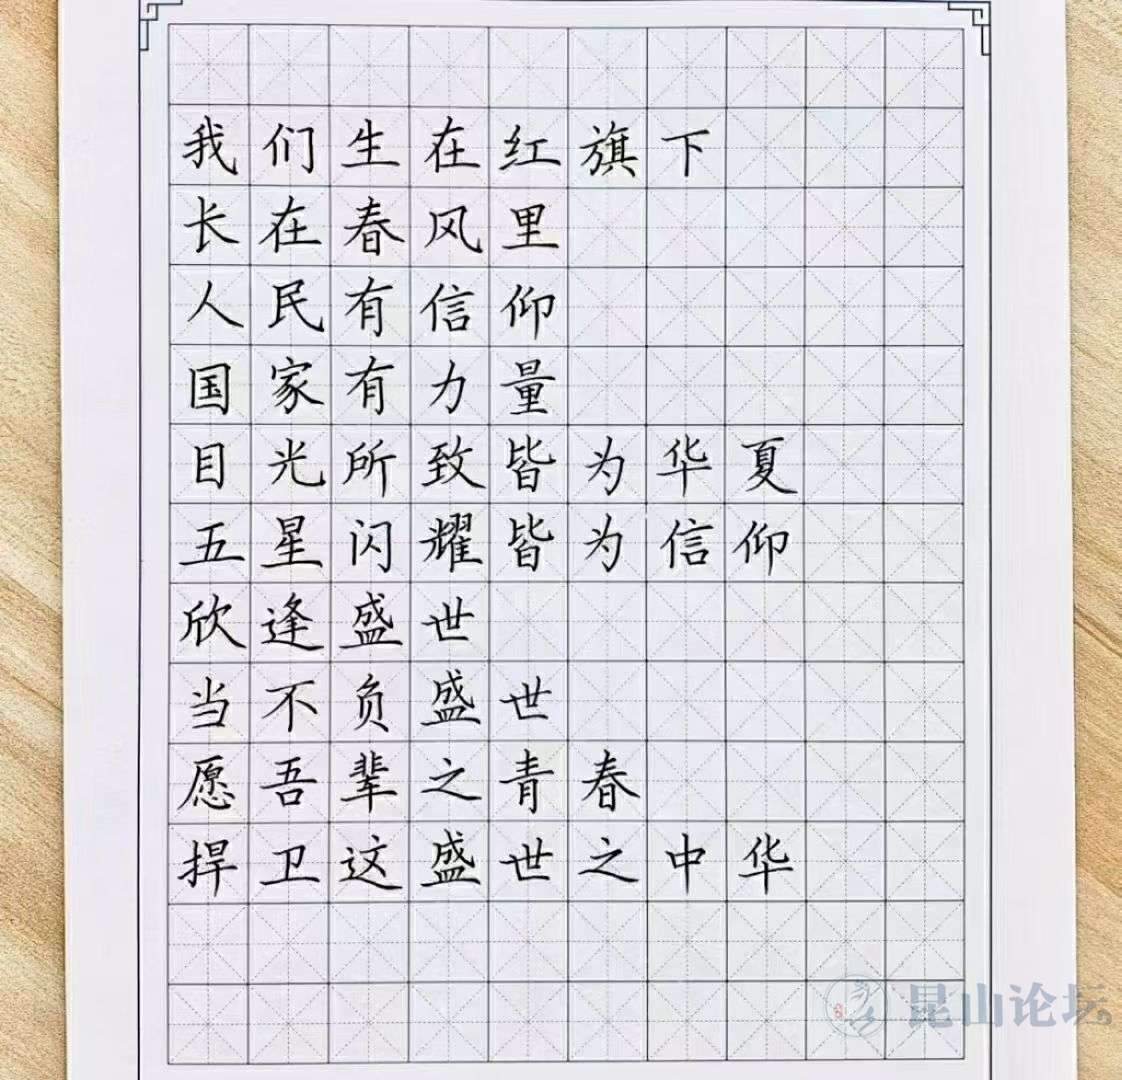 我们生在红旗下
长在春风里
人民有信仰
国家有力量
目光所致皆为华夏
五星闪耀皆为信仰
欣逢盛世
当不负盛世
愿吾辈之青春
捍卫这盛世之中华
昆山论坛